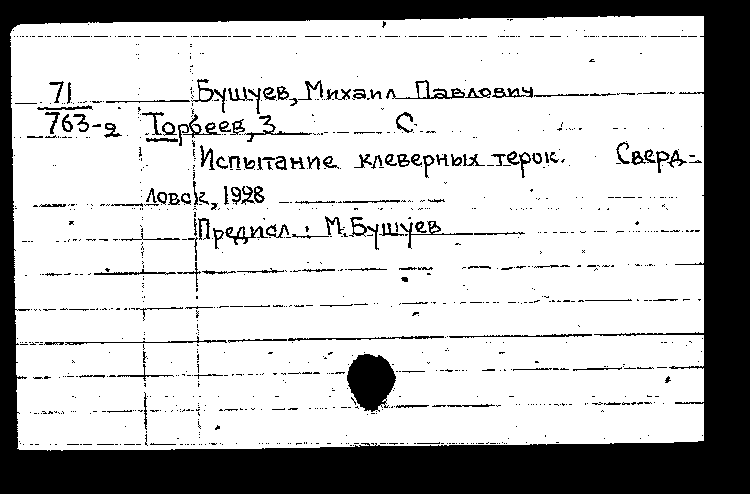 71 Бушуев, Михаил Павлович
763-2 Торбеев, З. С
Испытание клеверных терок. Сверд-
ловск, 1928
Предисл.: М. Бушуев